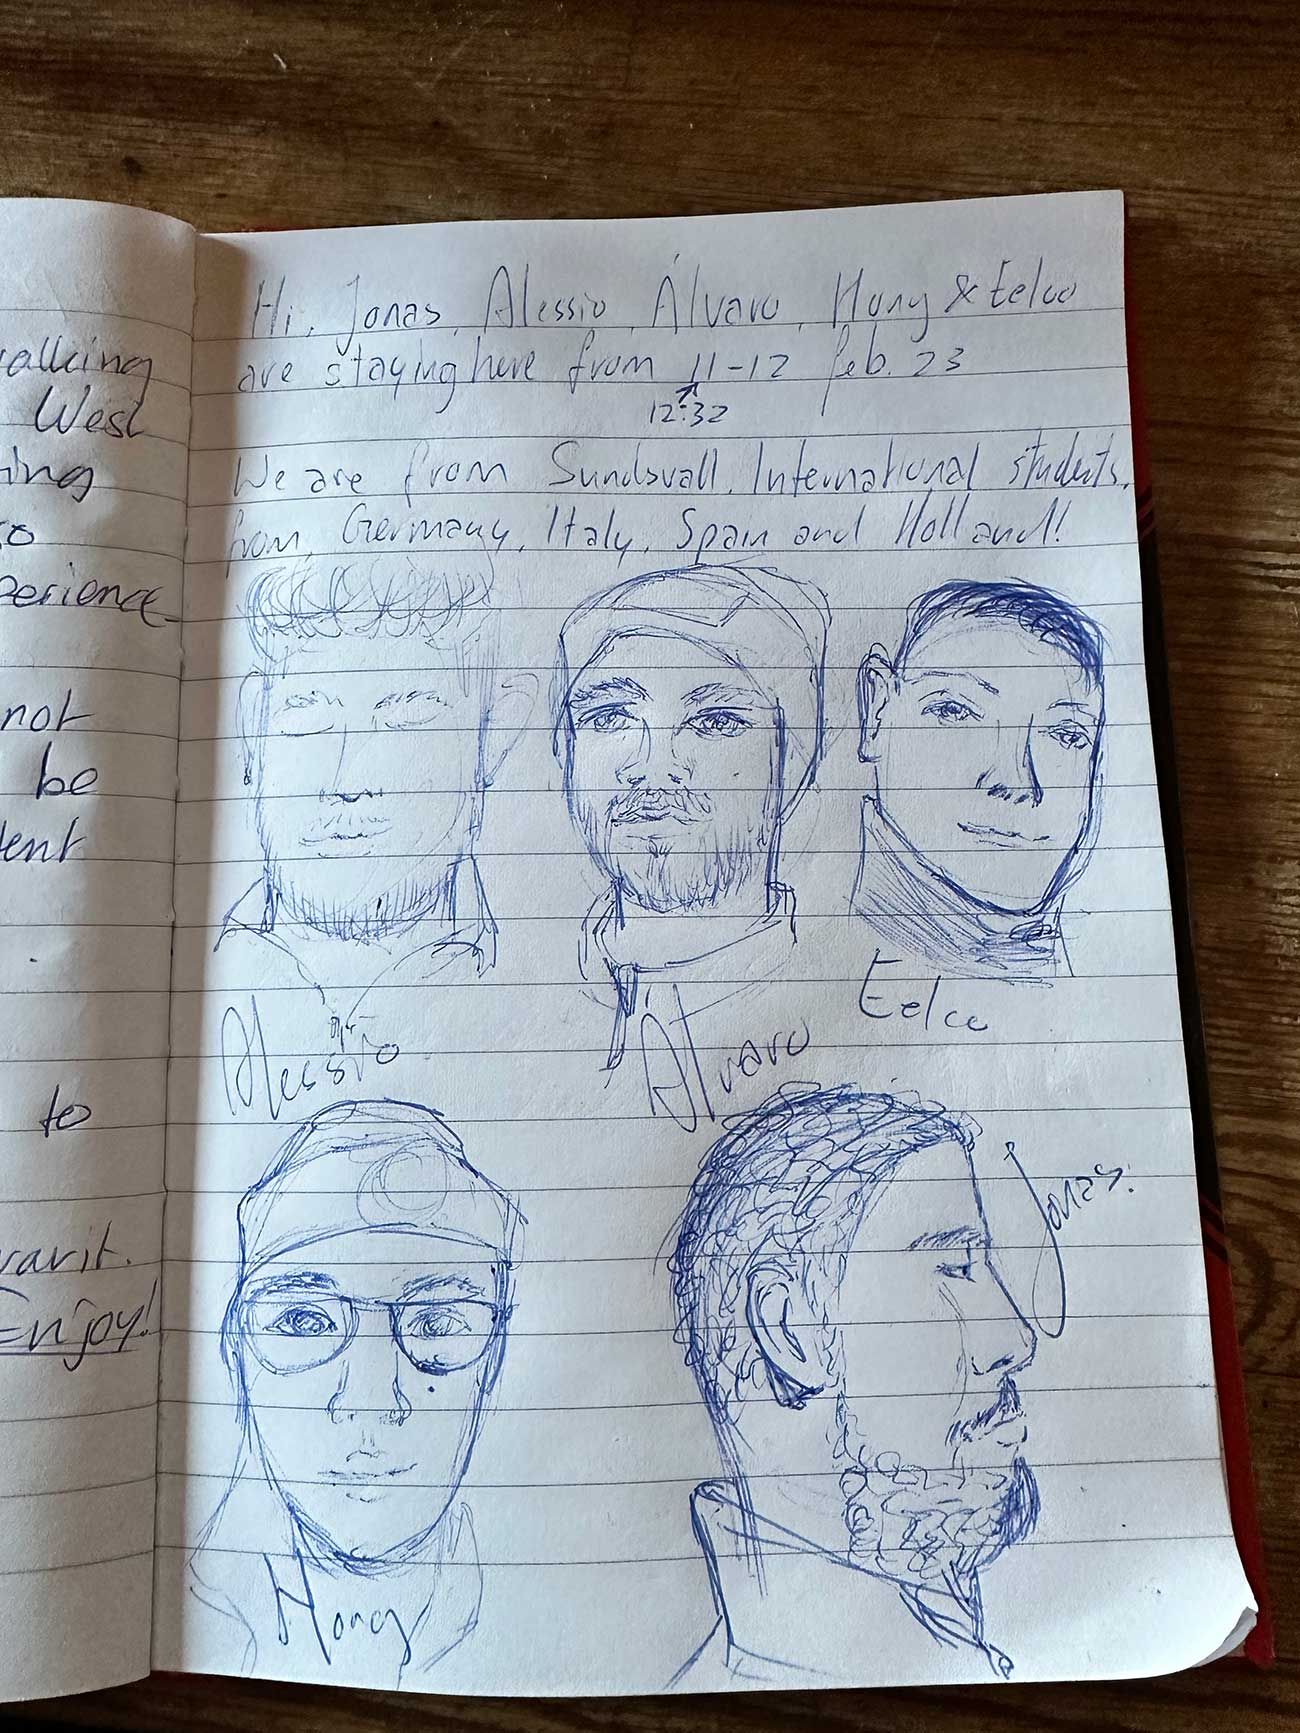 walking
West
so
perience
not
be
to
Enjoy!
Hi, Jonas, Alessio, Álvaro, Hong & Eelco
are staying here from 11-12 feb. 23
12:32
We are from Sundsvall. International students,
from, Germany, Italy, Spain and Holland!
Alessio
Álvaro
Eelco
Jonas.
Hong